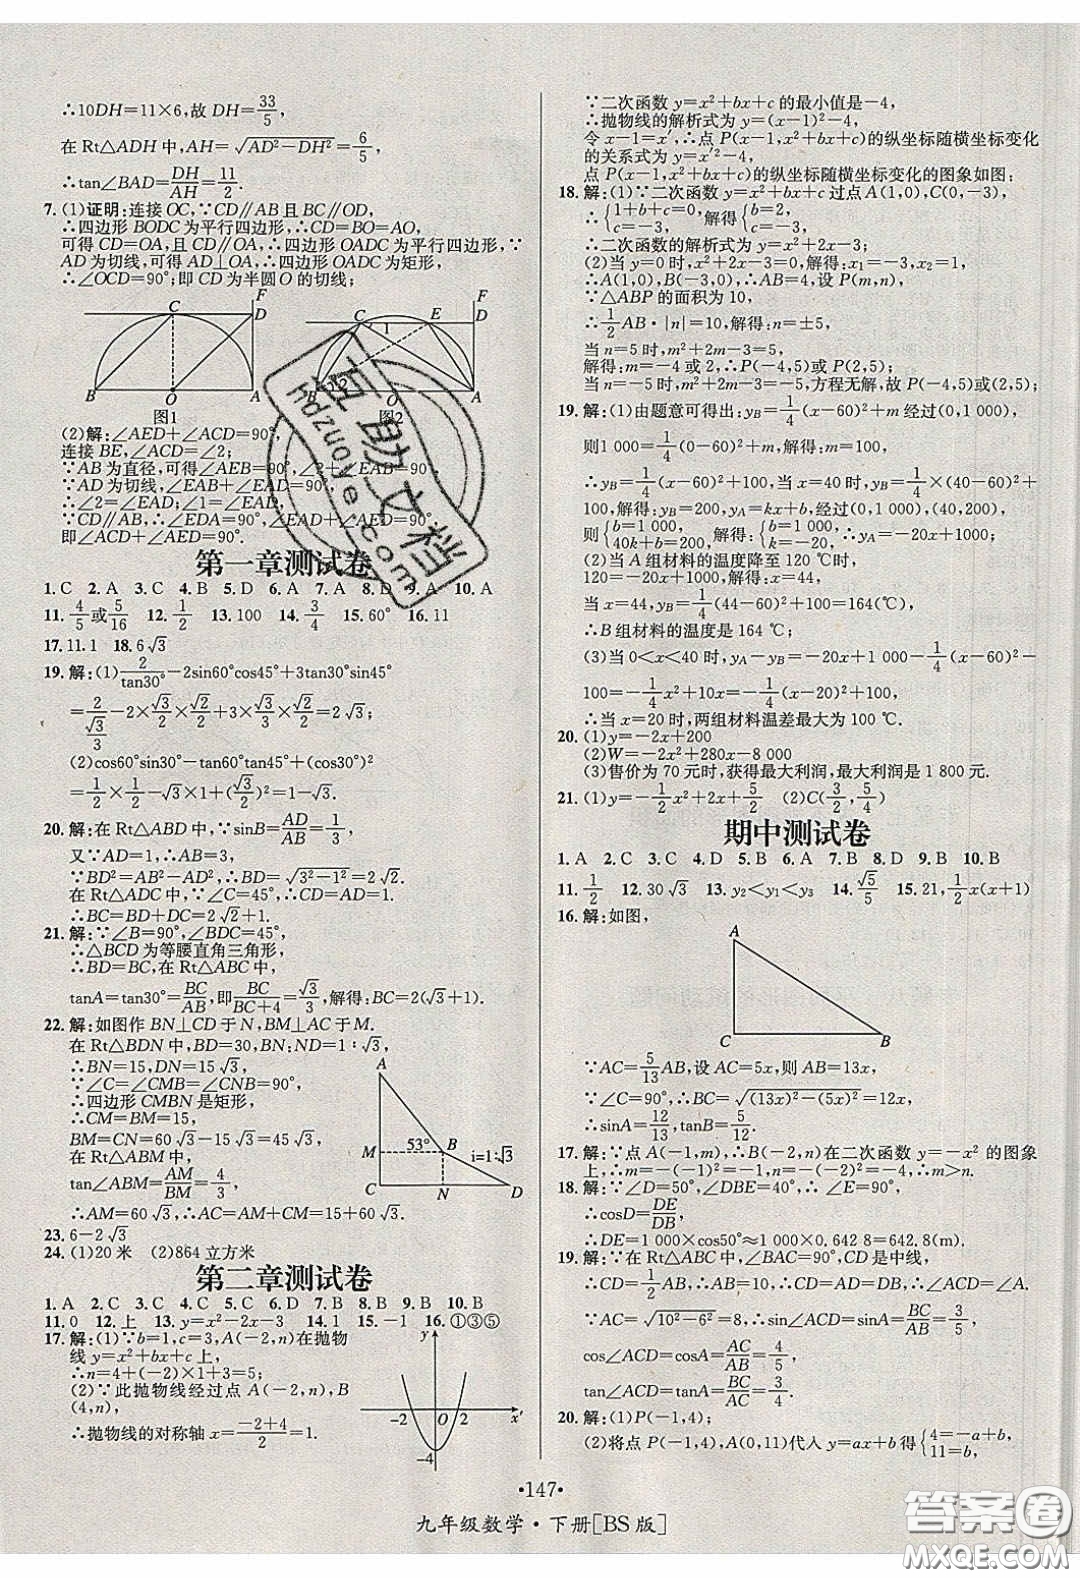 ∴10DH=11×6,故 DH=33/5,
在 Rt△ADH 中,AH=√(AD²-DH²)=6/5,
∴tan∠BAD=DH/AH=11/2.
7. (1)证明:连接 OC,∵CD∥AB 且 BC∥OD,
∴四边形 BODC 为平行四边形,∴CD=BO=AO,
可得 CD=OA,且 CD∥OA,∴四边形 OADC 为平行四边形,∵
AD 为切线,可得 AD⊥OA,∴四边形 OADC 为矩形,
∴∠OCD=90°,即 CD 为半圆 O 的切线;
C D F B O A
图1
C E F D 1 2 B O A
图2
(2)解:∠AED+∠ACD=90°,
连接 BE,∠ACD=∠2;
∵AB 为直径,可得∠AEB=90°,∠2+∠EAB=90°,
∵AD 为切线,∠EAB+∠EAD=90°,
∴∠2=∠EAD,∠1=∠EAD;
∵CD∥AB,∴∠EDA=90°,∠AED+∠EAD=90°,
即∠AED+∠ACD=90°.
第一章测试卷
1. C 2. A 3. C 4. B 5. D 6. A 7. A 8. D 9. A 10. A
11. 4/5或5/16 12. 1/2 13. 100 14. 3/4 15. 60° 16. 11
17. 11.1 18. 6√3
19. 解:(1)2/tan30°-2sin60°cos45°+3tan30°sin45°
=2/(√3/3)-2×√3/2×√2/2+3×√3/3×√2/2=2√3;
(2)cos60°sin30°-tan60°tan45°+(cos30°)²
=1/2×1/2-√3×1+(√3/2)²=1-√3.
20. 解:在 Rt△ABD 中,∵sinB=AD/AB=1/3,
又∵AD=1,∴AB=3,
∵BD²=AB²-AD²,∴BD=√(3²-1²)=2√2.
在 Rt△ADC 中,∵∠C=45°,∴CD=AD=1.
∴BC=BD+DC=2√2+1.
21. 解:∵∠B=90°,∠BDC=45°,
∴△BCD 为等腰直角三角形,
∴BD=BC,在 Rt△ABC 中,
tanA=tan30°=BC/AB,即BC/(BC+4)=√3/3,解得:BC=2(√3+1).
22. 解:如图作 BN⊥CD 于 N,BM⊥AC 于 M.
在 Rt△BDN 中,BD=30,BN:ND=1:√3,
∴BN=15,DN=15√3,
∵∠C=∠CMB=∠CNB=90°,
∴四边形 CMBN 是矩形,
∴CM=BM=15,
BM=CN=60√3-15√3=45√3,
在 Rt△ABM 中,
tan∠ABM=AM/BM=4/3,
∴AM=60√3,∴AC=AM+CM=15+60√3.
A M 53° B i=1:√3 C N D
23. 6-2√3
24. (1)20 米 (2)864 立方米
第二章测试卷
1. A 2. C 3. C 4. A 5. C 6. D 7. B 8. B 9. B 10. B
11. 0 12. 上 13. y=x²-2x-3 14. 1 15. -1 16. ①③⑤
17. 解:(1)∵b=1,c=3,A(-2,n)在抛物
线 y=x²+bx+c 上,
∴n=4+(-2)×1+3=5.
(2)∵此抛物线经过点 A(-2,n),B
(4,n),
∴抛物线的对称轴 x=(-2+4)/2=1.
y -2 O 2 x′ -4
∵二次函数 y=x²+bx+c 的最小值是-4,
∴抛物线的解析式为 y=(x-1)²-4,
令 x-1=x′,∴点 P(x-1,x²+bx+c)的纵坐标随横坐标变化
的关系式为 y=x′²-4,
点 P(x-1,x²+bx+c)的纵坐标随横坐标变化的图象如图;
18. 解:(1)∵二次函数 y=x²+bx+c 过点 A(1,0),C(0,-3),
∴{1+b+c=0, c=-3, 解得{b=2, c=-3,
∴二次函数的解析式为 y=x²+2x-3;
(2)当 y=0 时,x²+2x-3=0,解得:x₁=-3,x₂=1;
∴A(1,0),B(-3,0),∴AB=4,设 P(m,n),
∵△ABP 的面积为 10,
∴1/2AB·|n|=10,解得:n=±5,
当 n=5 时,m²+2m-3=5,
解得:m=-4 或 2,∴P(-4,5)或 P(2,5);
当 n=-5 时,m²+2m-3=-5,方程无解,故 P(-4,5)或(2,5);
19. 解:(1)由题意可得出:y_B=1/4(x-60)²+m 经过(0,1 000),
则1 000=1/4(0-60)²+m,解得:m=100,
∴y_B=1/4(x-60)²+100,当 x=40 时,y_B=1/4×(40-60)²+
100,解得:y_B=200,y_A=kx+b,经过(0,1 000),(40,200),
则{b=1 000, 40k+b=200, 解得:{b=1 000, k=-20, ∴y_A=-20x+1 000;
(2)当 A 组材料的温度降至 120℃时,
120=-20x+1 000,解得:x=44,
当 x=44,y_B=1/4(44-60)²+100=164(℃),
∴B 组材料的温度是 164℃;
(3)当 0<x<40 时,y_A-y_B=-20x+1 000-1/4(x-60)²-
100=-1/4x²+10x=-1/4(x-20)²+100,
∴当 x=20 时,两组材料温差最大为 100℃.
20. (1)y=-2x+200
(2)W=-2x²+280x-8 000
(3)售价为 70 元时,获得最大利润,最大利润是 1 800 元.
21. (1)y=-1/2x²+2x+5/2 (2)C(3/2,5/4)
期中测试卷
1. A 2. C 3. C 4. D 5. B 6. A 7. B 8. D 9. B 10. B
11. 1/2 12. 30√3 13. y₂<y₁<y₃ 14. √5/5 15. 21,1/2x(x+1)
16. 解:如图,
A C B
∵AC=5/13AB,设 AC=5x,则 AB=13x,
∵∠C=90°,∴BC=√((13x)²-(5x)²)=12x,
∴sinA=12/13,tanB=5/12.
17. 解:∵点 A(-1,m),B(-2,n)在二次函数 y=-x² 的图象
上,∴m=-(-1)²=-1,n=-(-2)²=-4,∴m>n.
18. 解:∵∠D=50°,∠DBE=40°,∴∠E=90°,
∴cosD=DE/DB,
∴DE=1 000×cos50°≈1 000×0.642 8=642.8(m).
19. 解:∵在 Rt△ABC 中,∠BAC=90°,CD 是中线,
∴CD=1/2AB,∴AB=10,∴AD=CD,∴∠ACD=∠A.
∵AC=√(10²-6²)=8,∴sin∠ACD=sinA=BC/AB=3/5,
cos∠ACD=cosA=AC/AB=4/5,
tan∠ACD=tanA=BC/AC=3/4.
20. 解:(1)P(-1,4);
(2)将点 P(-1,4),A(0,11)代入 y=ax+b 得{4=-a+b, 11=b,
·147·
九年级数学·下册[BS版]
互助文档
hdzuoye.com
答案圈
MXQE.COM